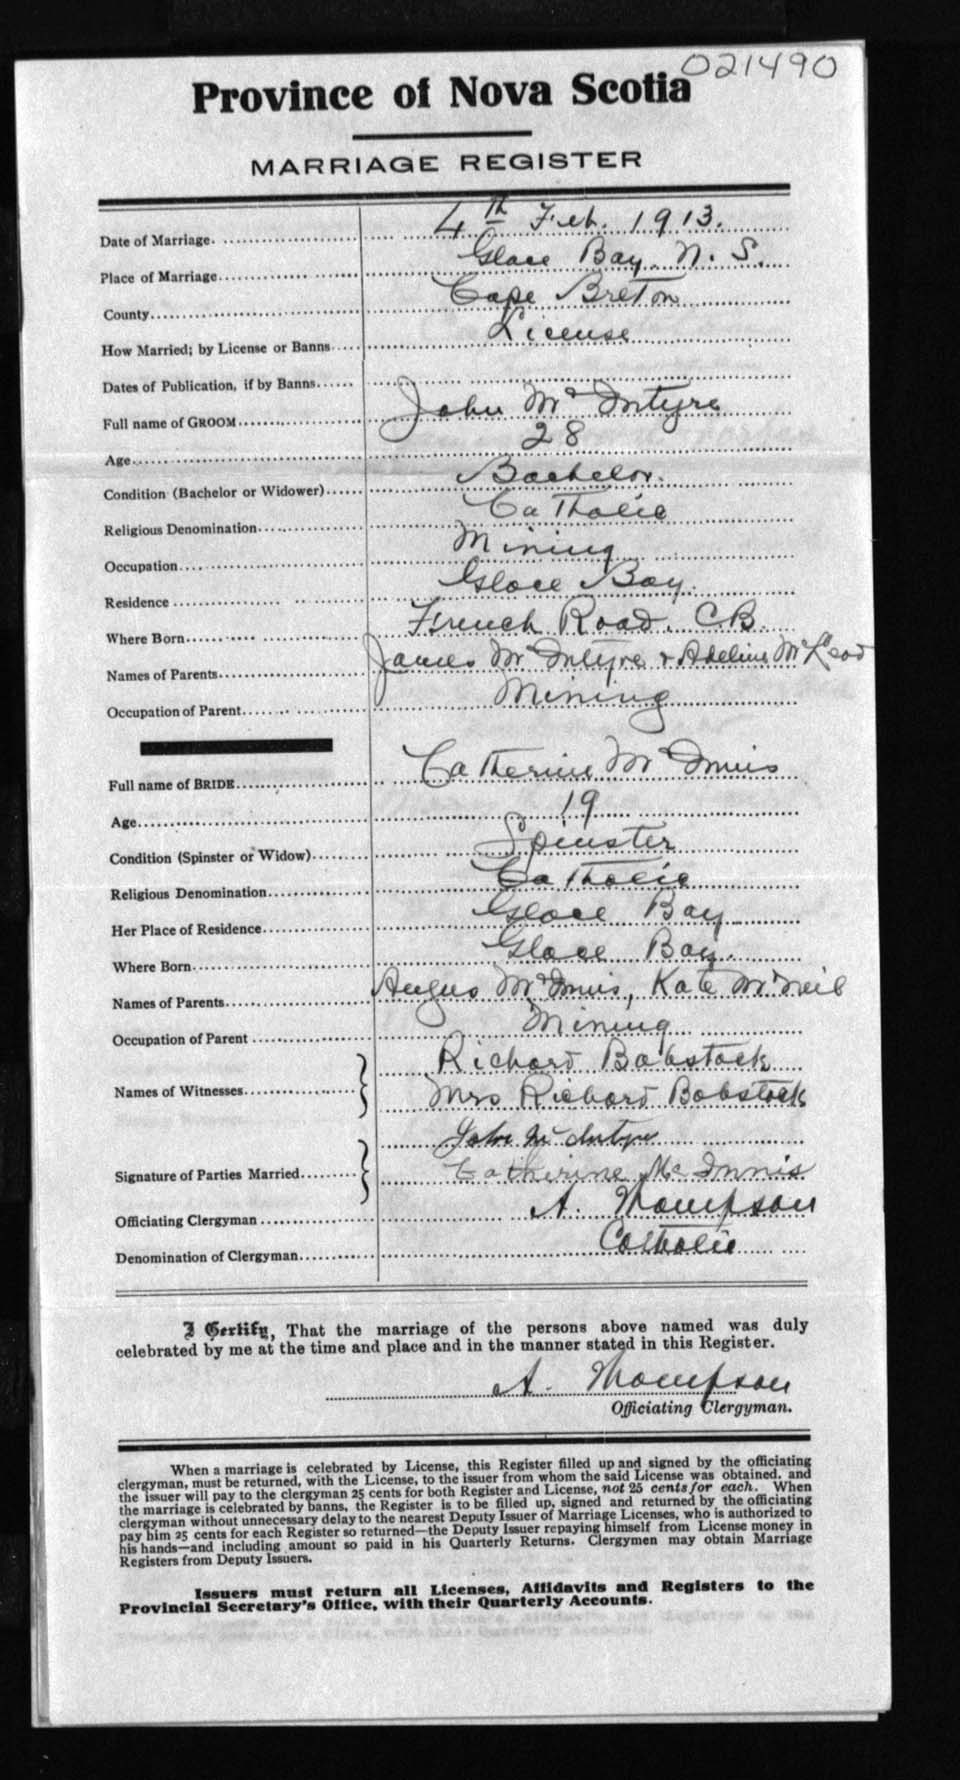 021490
Province of Nova Scotia
MARRIAGE REGISTER
Date of Marriage 4th Feb. 1913.
Place of Marriage Glace Bay. N. S.
County Cape Breton
How Married; by License or Banns License
Dates of Publication, if by Banns
Full name of GROOM John McIntyre
Age 28
Condition (Bachelor or Widower) Bachelor.
Religious Denomination Catholic
Occupation Mining
Residence Glace Bay.
Where Born French Road. C.B.
Names of Parents James McIntyre & Adeline McLeod
Occupation of Parent Mining
Full name of BRIDE Catherine McInnis
Age 19
Condition (Spinster or Widow) Spinster
Religious Denomination Catholic
Her Place of Residence Glace Bay
Where Born Glace Bay.
Names of Parents Angus McInnis, Kate McNeil
Occupation of Parent Mining
Names of Witnesses Richard Babstock
Mrs Richard Bobstock
Signature of Parties Married John McIntyre
Catherine McInnis
Officiating Clergyman A. Thompson
Denomination of Clergyman Catholic
I Certify, That the marriage of the persons above named was duly
celebrated by me at the time and place and in the manner stated in this Register.
A. Thompson
Officiating Clergyman.
When a marriage is celebrated by License, this Register filled up and signed by the officiating
clergyman, must be returned, with the License, to the issuer from whom the said License was obtained, and
the issuer will pay to the clergyman 25 cents for both Register and License, not 25 cents for each. When
the marriage is celebrated by banns, the Register is to be filled up, signed and returned by the officiating
clergyman without unnecessary delay to the nearest Deputy Issuer of Marriage Licenses, who is authorized to
pay him 25 cents for each Register so returned—the Deputy Issuer repaying himself from License money in
his hands—and including amount so paid in his Quarterly Returns. Clergymen may obtain Marriage
Registers from Deputy Issuers.
Issuers must return all Licenses, Affidavits and Registers to the
Provincial Secretary's Office, with their Quarterly Accounts.